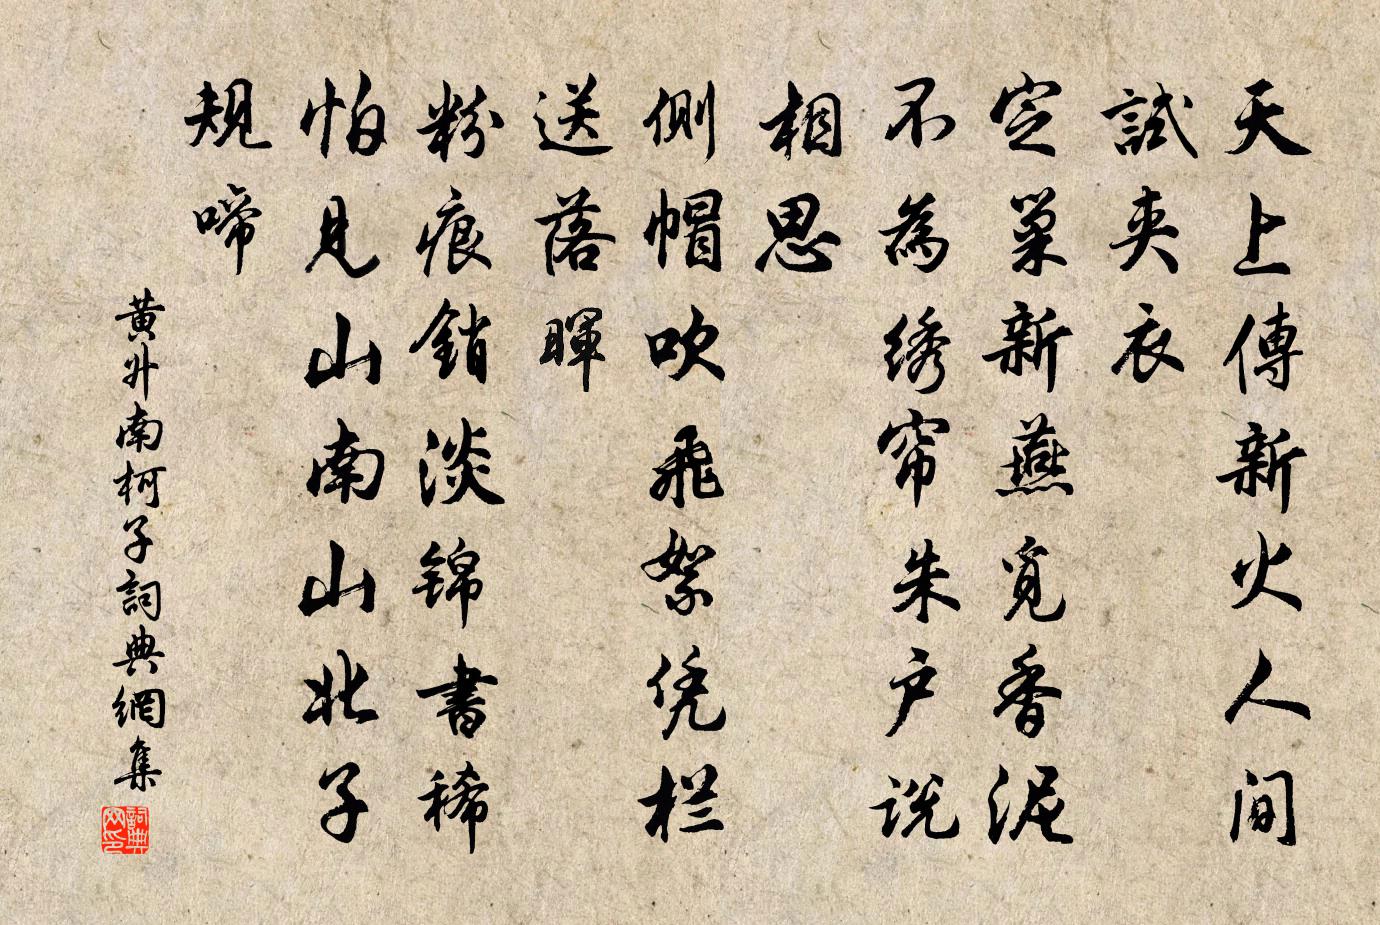 天上傳新火人间
試夹衣
定巢新燕觅香泥
不為绣帘朱户说
相思
侧帽吹飛絮凭栏
送落暉
粉痕銷淡锦書稀
怕見山南山北子
規啼
黄升南柯子詞典網集
詞典网印